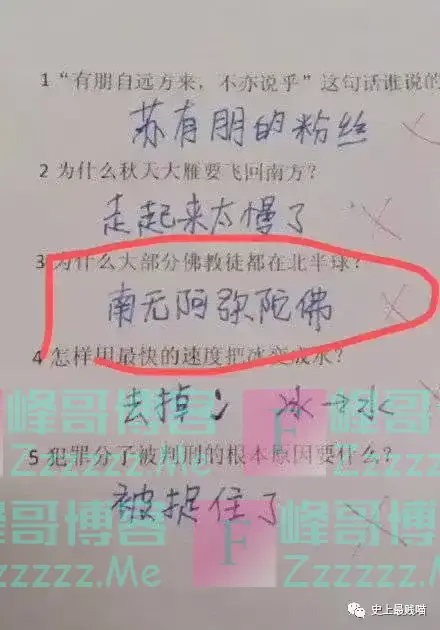 1 “有朋自远方来，不亦说乎”这句话谁说的
苏有朋的粉丝
2 为什么秋天大雁要飞回南方？
走起来太慢了
3 为什么大部分佛教徒都在北半球？
南无阿弥陀佛
4 怎样用最快的速度把冰变成水？
去掉冫 冰→水
5 犯罪分子被判刑的根本原因要什么？
被捉住了
峰哥博客
Zzzzzz.Me
F
峰哥博客
Zzzzzz.Me
F
峰哥博客
Zzzzzz.Me
史上最贱喵